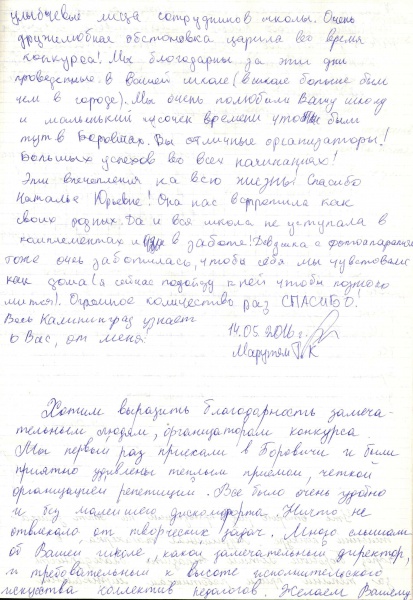 улыбчевые лица сотрудников школы. Очень
дружелюбная обстановка царила во время
конкурса! Мы благодарны за эти дни
проведенные в Вашей школе (в школе больше были
чем в городе). Мы очень полюбили Вашу школу
и маленький кусочек времени что мы были
тут в Боровичах. Вы отличные организаторы!
Больших успехов во всех начинаниях!
Эти впечетления на всю жизнь! Спасибо
Наталье Юрьевне! Она нас встретила как
своих родных. Да и вся школа не уступала в
комплементах и в заботе! Девушка с фотоапаратом
тоже очень заботилась, чтобы себя мы чувствовали
как дома (я сейчас подойду к ней чтобы познако
миться). Огромное количество раз СПАСИБО!
Весь Калининград узнает
о Вас, от меня!
14.05.2016г.
К
Хотим выразить благодарность замеча-
тельным людям, организаторам конкурса.
Мы первый раз приехали в Боровичи и были
приятно удивлены тёплым приёмом, чёткой
организацией репетиции. Всё было очень удобно
и без малейшего дискомфорта. Ничто не
отвлекало от творческих задач. Много слышали
о Вашей школе, какой замечательный директор,
и требовательный к высоте исполнительского
искусства коллектив педагогов. Желаем Вашему